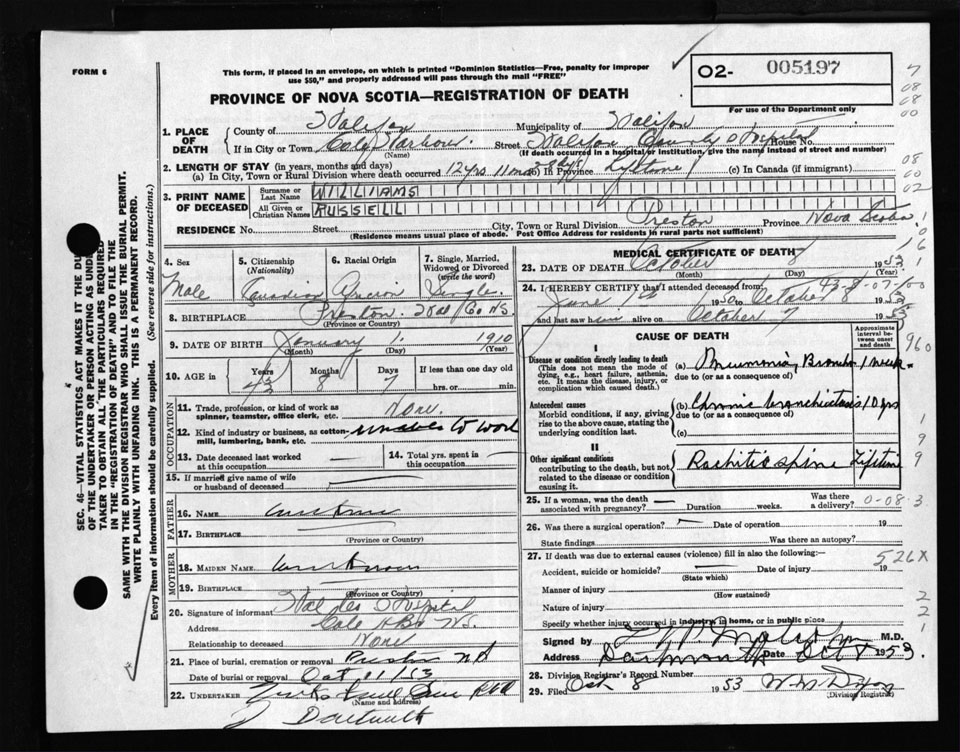 FORM 6
This form, if placed in an envelope, on which is printed "Dominion Statistics—Free, penalty for improper
use $50," and properly addressed will pass through the mail "FREE"
O2- 005197
For use of the Department only
PROVINCE OF NOVA SCOTIA—REGISTRATION OF DEATH
1. PLACE OF DEATH County of Halifax Municipality of Halifax
If in City or Town Cole Harbour (Name) Street Halifax County Hospital House No.
(If death occurred in a hospital or institution, give the name instead of street and number)
2. LENGTH OF STAY (in years, months and days)
(a) In City, Town or Rural Division where death occurred 12 yrs 11 mos (b) In Province Lifetime (c) In Canada (if immigrant)
3. PRINT NAME OF DECEASED Surname or Last Name. WILLIAMS
All Given or Christian Names RUSSELL
RESIDENCE No. Street City, Town or Rural Division Preston Province Nova Scotia
(Residence means usual place of abode. Post Office Address for residents in rural parts not sufficient)
4. Sex Male
5. Citizenship (Nationality) Canadian
6. Racial Origin
7. Single, Married, Widowed or Divorced (write the word) Single
8. BIRTHPLACE Preston Co NS
(Province or Country)
9. DATE OF BIRTH January 1 1910
(Month) (Day) (Year)
10. AGE in Years 43 Months 8 Days 7 If less than one day old hrs. or min.
OCCUPATION
11. Trade, profession, or kind of work as spinner, teamster, office clerk, etc. None
12. Kind of industry or business, as cotton-mill, lumbering, bank, etc. unable to work
13. Date deceased last worked at this occupation —
14. Total yrs. spent in this occupation —
15. If married give name of wife or husband of deceased —
FATHER
16. NAME Unknown
17. BIRTHPLACE
(Province or Country)
MOTHER
18. MAIDEN NAME Unknown
19. BIRTHPLACE
(Province or Country)
20. Signature of informant Hal Co Hospital
Address Cole Hbr NS.
Relationship to deceased None
21. Place of burial, cremation or removal Preston NS
Date of burial or removal Oct 11/53
22. UNDERTAKER
(Name and address)
Dartmouth
MEDICAL CERTIFICATE OF DEATH
23. DATE OF DEATH October 1953
(Month) (Day) (Year)
24. I HEREBY CERTIFY that I attended deceased from
June 1st to October 8 1953
and last saw him alive on October 7 1953
CAUSE OF DEATH
Approximate interval between onset and death
I
Disease or condition directly leading to death
(This does not mean the mode of dying, e.g., heart failure, asthenia, etc. It means the disease, injury, or complication which caused death.)
(a) Pneumonia, Broncho 1 week
due to (or as a consequence of)
Antecedent causes
Morbid conditions, if any, giving rise to the above cause, stating the underlying condition last.
(b) Chronic bronchiectasis 10 yrs
due to (or as a consequence of)
(c)
II
Other significant conditions
contributing to the death, but not related to the disease or condition causing it.
Rachitic spine Lifetime
25. If a woman, was the death associated with pregnancy? Duration weeks. Was there a delivery?
26. Was there a surgical operation? Date of operation 19
State findings Was there an autopsy?
27. If death was due to external causes (violence) fill in also the following:—
Accident, suicide or homicide? Date of injury 19
(State which)
Manner of injury
(How sustained)
Nature of injury
Specify whether injury occurred in industry, in home, or in public place
Signed by M.D.
Address Dartmouth Date Oct 8 1953
28. Division Registrar's Record Number
29. Filed Oct 8 1953
(Division Registrar)
93-8-07-100
960
0-08-3
526X
SEC. 46—VITAL STATISTICS ACT MAKES IT THE DU
OF THE UNDERTAKER OR PERSON ACTING AS UND
TAKER TO OBTAIN ALL THE PARTICULARS REQUIRED
IN THE "REGISTRATION OF DEATH" AND TO FILE THE
SAME WITH THE DIVISION REGISTRAR WHO SHALL ISSUE THE BURIAL PERMIT.
WRITE PLAINLY WITH UNFADING INK. THIS IS A PERMANENT RECORD.
Every item of information should be carefully supplied. (See reverse side for instructions.)